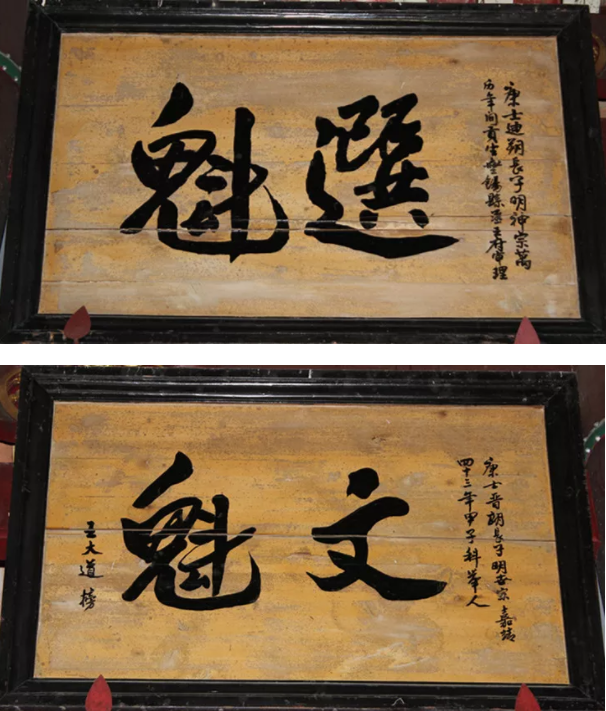 康士迪朗長子明神宗萬
历年间貢生無錫縣丞王府审理
選魁
康士晋朗長子明世宗嘉靖
四十三年甲子科举人
文魁
王大道榜